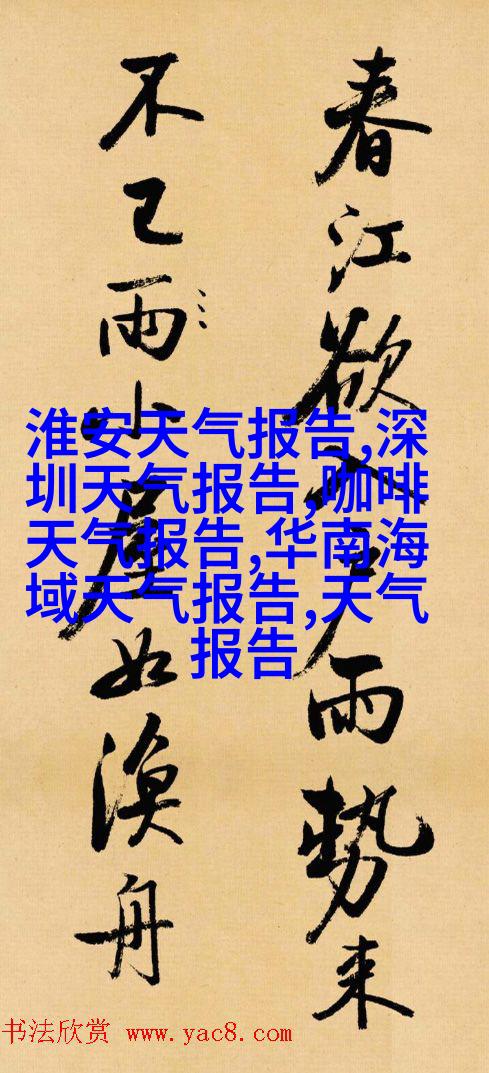 春江欲入户雨勢来
不已雨小屋如漁舟
淮安天气报告,深
圳天气报告,咖啡
天气报告,华南海
域天气报告,天气
报告
书法欣赏 www.yac8.com